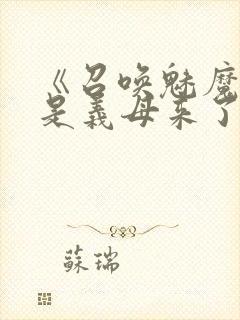 《召唤魅魔
是義母来了
蘇瑞